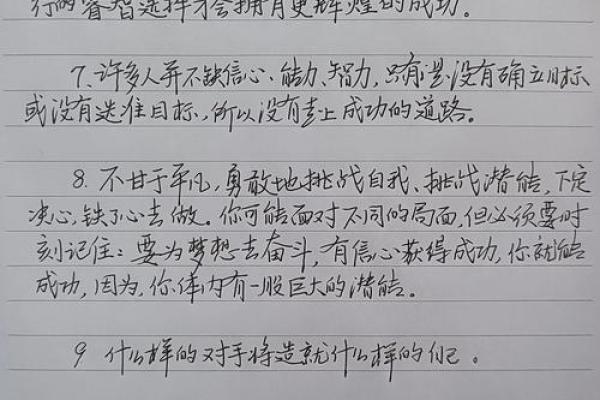 行的睿智选择才会拥有更辉煌的成功。
7、许多人并不缺信心、能力、智力,只有是没有确立目标
或没有选准目标,所以没有走上成功的道路。
8. 不甘于平凡,勇敢地挑战自我、挑战潜能,下定
决心,铁了心去做。你可能面对不同的局面,但必须要时
刻记住:要为梦想去奋斗,有信心获得成功,你就能
成功,因为,你体内有一股巨大的潜能。
9 什么样的对手将造就什么样的自己。